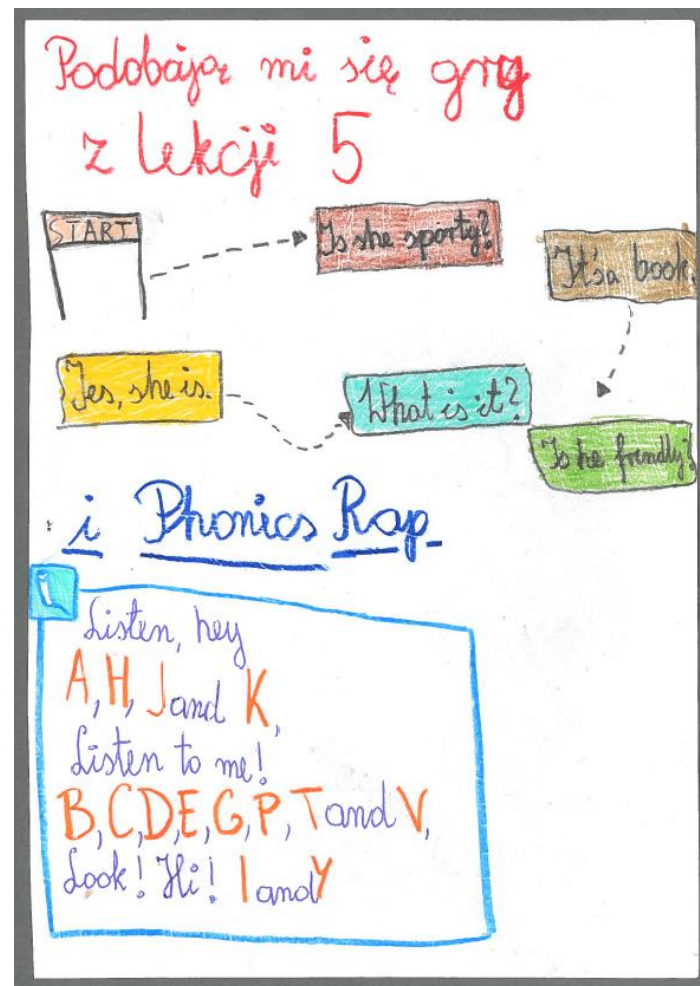 Podobają mi się gry
z lekcji 5
START
Is she sporty?
It's a book.
Yes, she is.
What is it?
Is he frendly?
i Phonics Rap.
Listen, hey
A, H, J and K,
Listen to me!
B, C, D, E, G, P, T and V,
Look! Hi! I and Y